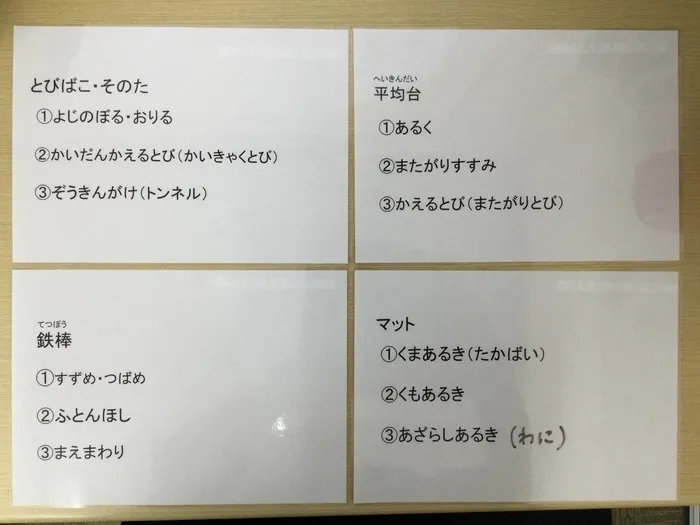 とびばこ・そのた
①よじのぼる・おりる
②かいだんかえるとび(かいきゃくとび)
③ぞうきんがけ(トンネル)
へいきんだい
平均台
①あるく
②またがりすすみ
③かえるとび(またがりとび)
てつぼう
鉄棒
①すずめ・つばめ
②ふとんほし
③まえまわり
マット
①くまあるき(たかばい)
②くもあるき
③あざらしあるき (わに)